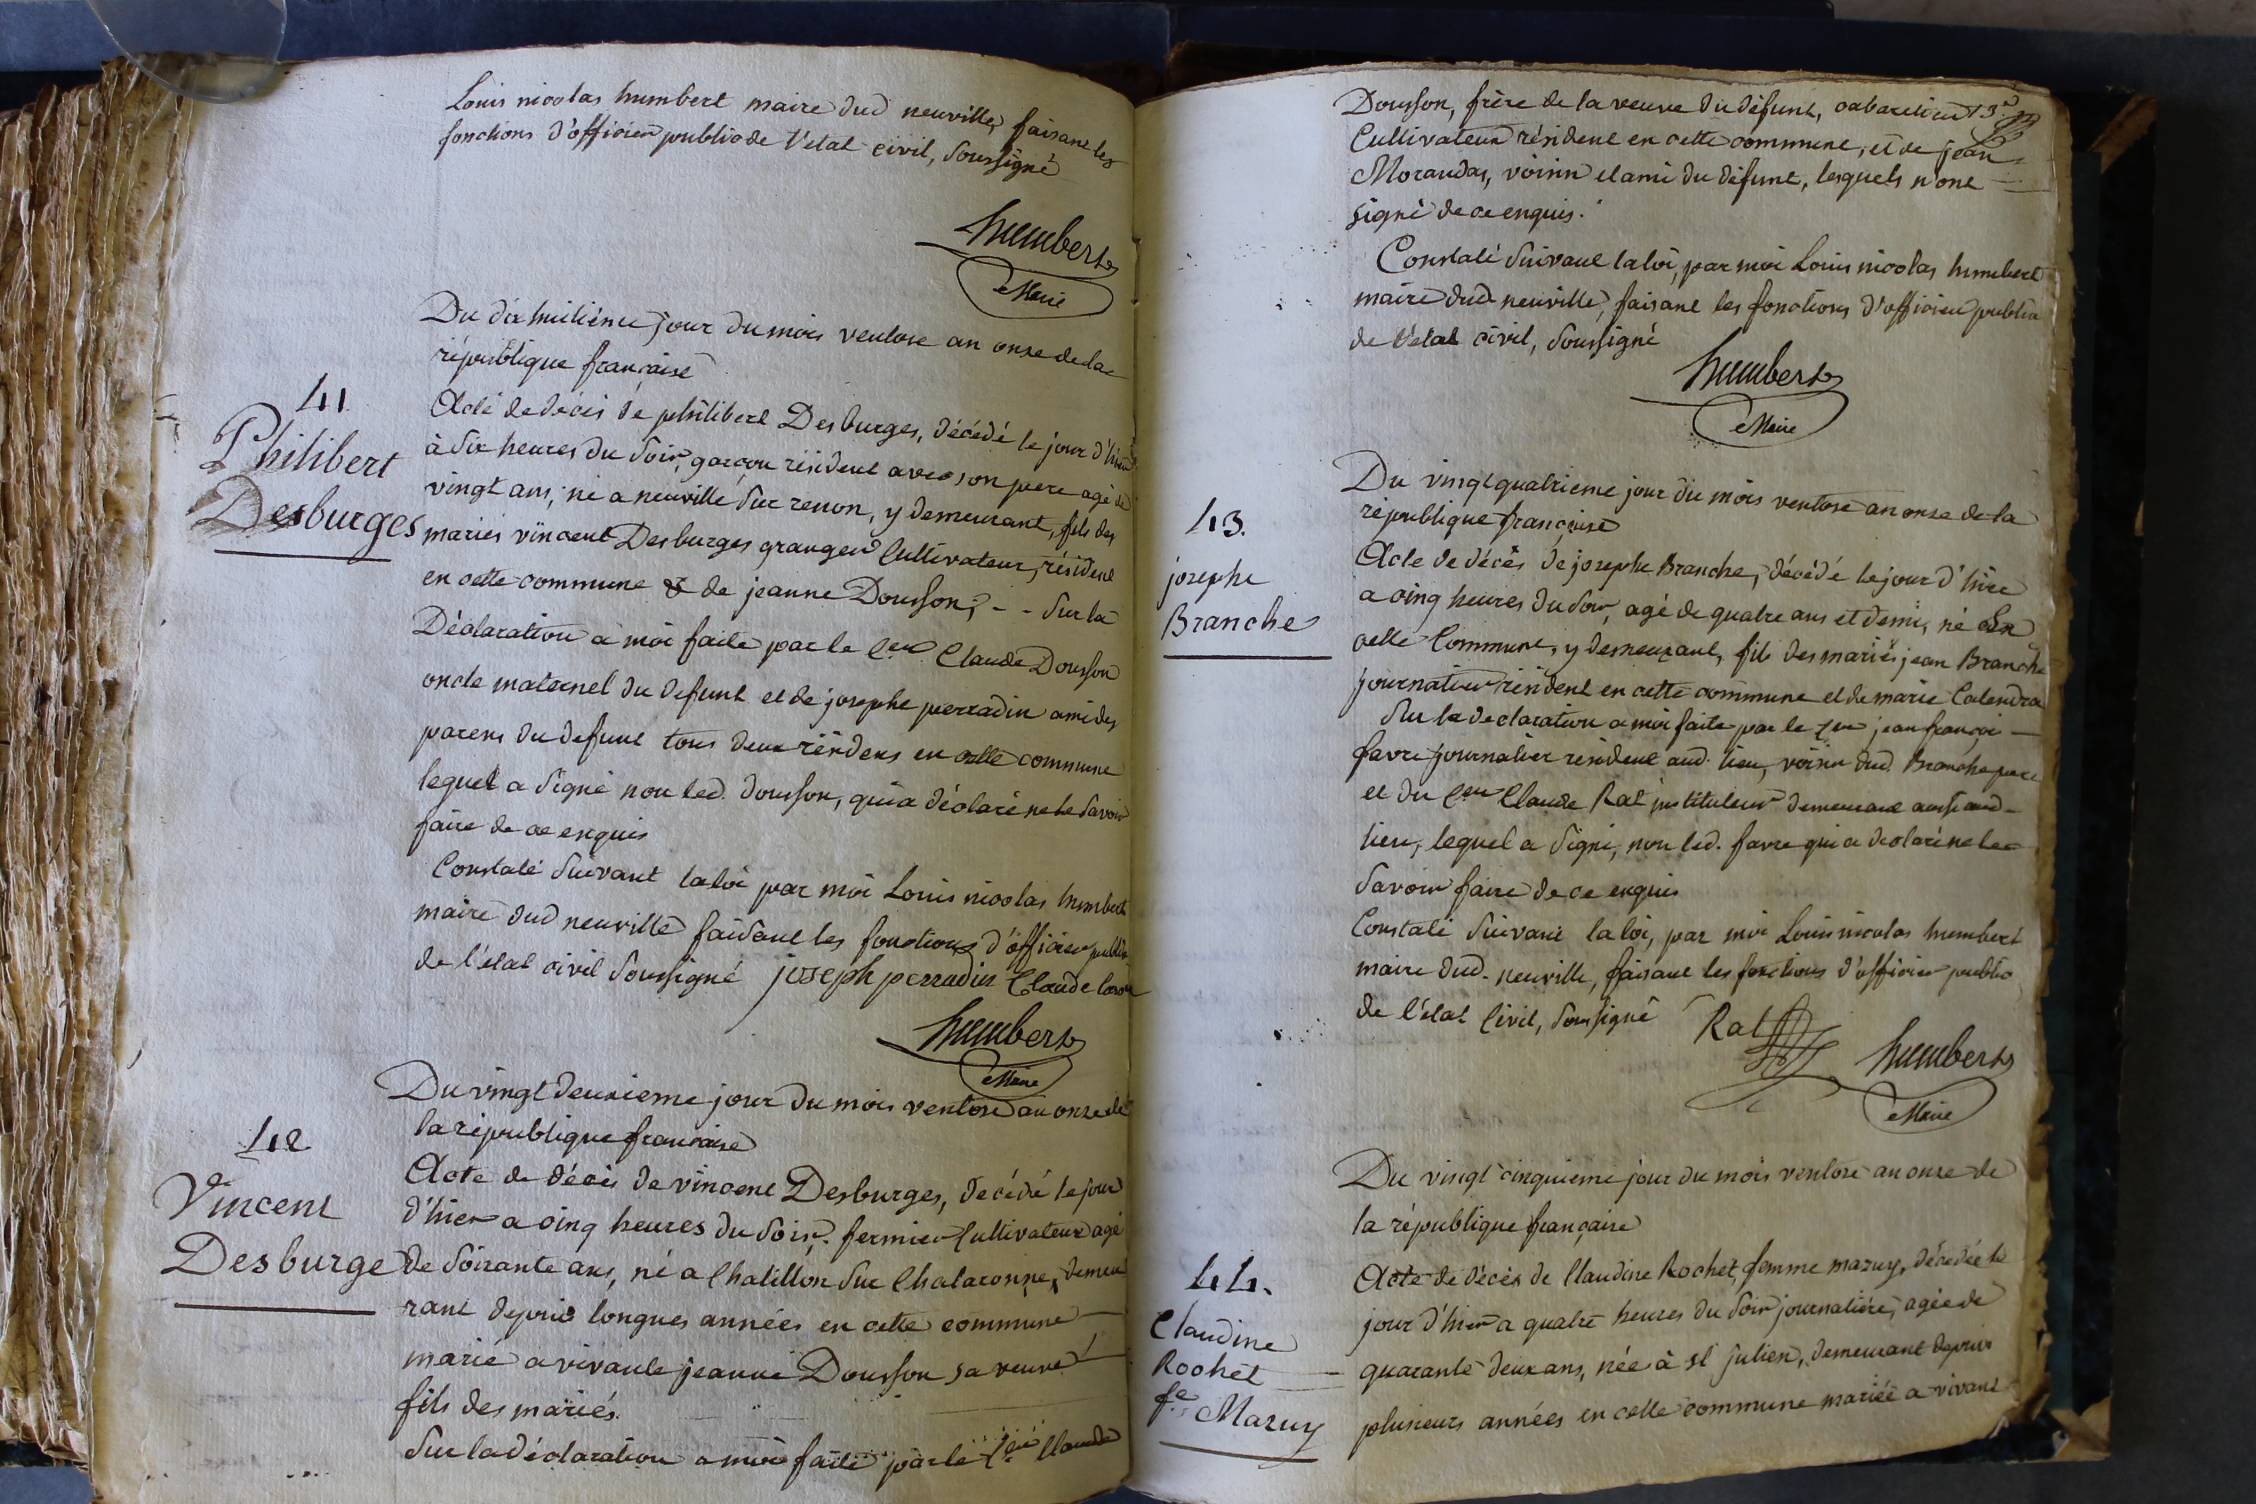 Louis nicolas humbert maire dud neuville, faisant les
fonctions d'officier public de l'etat civil, Soussigné
humbert
Maire
Du dix huitiéme jour du mois ventose an onze de la
république française
41
Philibert
Desburges
Acte de décès de philibert Desburges, décédé le jour d'hier
à Six heures du Soir, garçon résident avec son pere agé de
vingt ans, né a neuville Sur renon, y demeurant, fils des
mariés vincent Desburges granger Cultivateur, résident
en cette commune & de jeanne Dousson; - - Sur la
Déclaration a moi faite par le Cen Claude Dousson
oncle maternel du defunt et de josephe perradin ami des
parens du defunt tous deux résidens en cette commune
lequel a Signé non led. Dousson, qui a déclaré ne le Savoir
faire de ce enquis
Constaté Suivant la loi par moi Louis nicolas humbert
maire dud neuville faisant les fonctions d'officier public
de l'état civil Soussigné joseph perradin Claude
humbert
Maire
Du vingt deuxieme jour du mois ventose an onze de
la république française
42
Vincent
Desburge
Acte de décès de vincent Desburges, décédé le jour
d'hier a cinq heures du Soir, fermier Cultivateur agé
de Soixante ans, né a Chatillon Sur Chalaronne, demeu
rant depuis longues années en cette commune
marié a vivante jeanne Dousson sa veuve
fils des mariés
Sur la déclaration a moi faite par le Cen Claude
Dousson, frère de la veuve du défunt, cabaretier
Cultivateur résident en cette commune, et de jean
Morandas, voisin et ami du défunt, lesquels n'ont
signé de ce enquis.
Constaté Suivant la loi, par moi Louis nicolas humbert
maire dud neuville, faisant les fonctions d'officier public
de l'état civil, Soussigné
humbert
Maire
Du vingt quatrieme jour du mois ventose an onze de la
république française
43.
josephe
Branche
Acte de décès de josephe Branche, décédé le jour d'hier
a cinq heures du Soir, agé de quatre ans et demi, né En
cette Commune, y demeurant, fils des mariés jean Branche
journalier résident en cette commune et de marie Calendra
Sur la declaration a moi faite par le Cen jean françoi
favre journalier résident aud. lieu, voisin dud. Branche pere
et du Cen Claude Rat instituteur demeurant aussi aud
lieu, lequel a Signé, non led. favre qui a declaré ne le
Savoir faire de ce enquis
Constaté Suivant la loi, par moi Louis nicolas humbert
maire dud. neuville, faisant les fonctions d'officier public
de l'état Civil, Soussigné
Rat
humbert
Maire
Du vingt cinquieme jour du mois ventose an onze de
la république française
44.
Claudine
Rochet
fe. Mazuy
Acte de décès de Claudine Rochet, femme mazuy, décédée le
jour d'hier a quatre heures du Soir journalière, agée de
quarante deux ans, née à st julien, demeurant depuis
plusieurs années en cette commune mariée a vivant